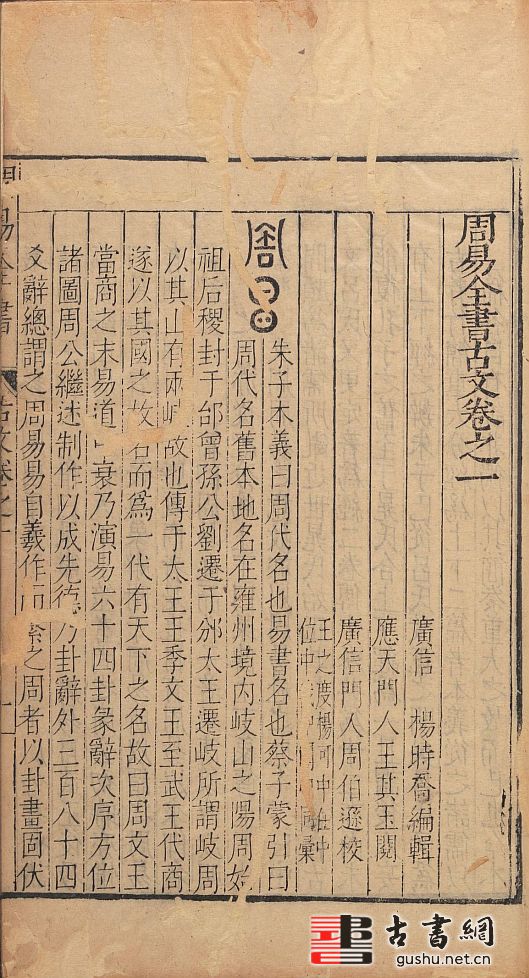 周易全書古文卷之一
廣信 楊時喬編輯
應天門人王其玉閱
廣信門人周伯遜校
朱子本義曰周代名也易書名也蔡子蒙引曰
周代名舊本地名在雍州境内岐山之陽周始
祖后稷封于邰曾孫公劉遷于邠太王遷岐所謂岐周
以其山有兩岐故也傳于太王王季文王至武王代商
遂以其國之故名而為一代有天下之名故曰周文王
當商之末易道中衰乃演易六十四卦彖辭次序方位
諸圖周公繼述制作以成先德乃卦辭外三百八十四
爻辭總謂之周易易自羲作而繫之周者以卦畫固伏
易全書 古文卷之一
古書網
gushu.net.cn